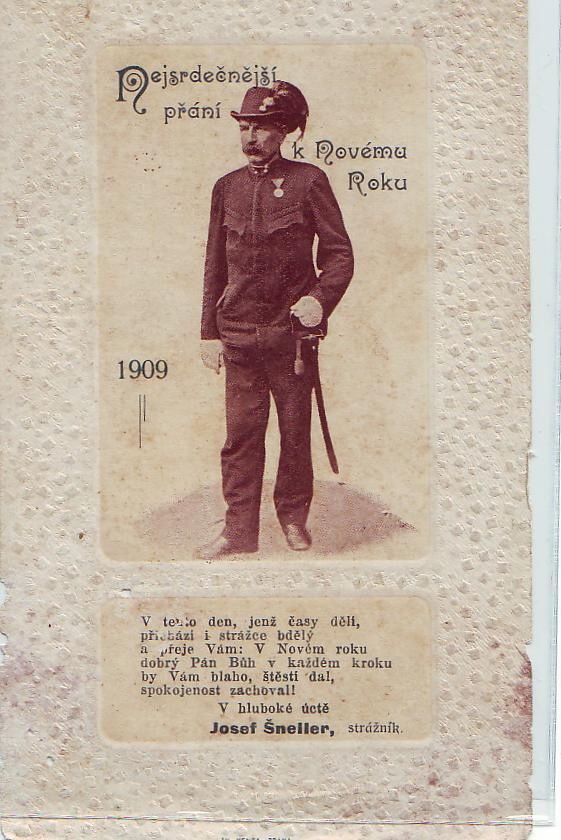 Nejsrdečnější
přání
k Novému
Roku
1909
V tento den, jenž časy dělí,
přichází i strážce bdělý
a přeje Vám: V Novém roku
dobrý Pán Bůh v každém kroku
by Vám blaho, štěstí dal,
spokojenost zachoval!
V hluboké úctě
Josef Šneller, strážník.